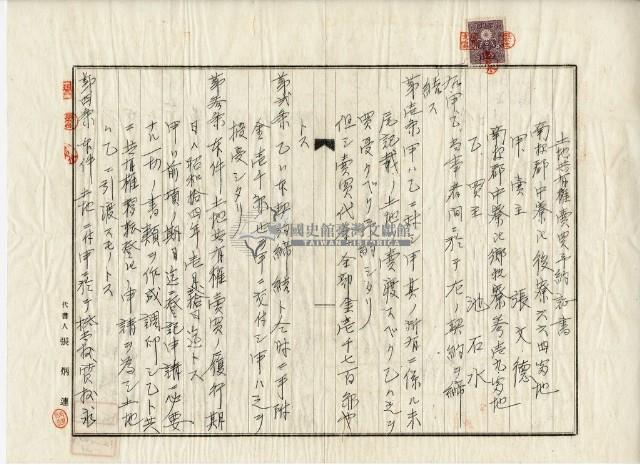 土地共有権賣買予約証書
南投郡中寮庄後寮六六四番地
甲 賣主 張文德
南投郡中寮庄鄉親寮 番地
乙 買主 池石水
右甲乙当事者間ニ於テ左ノ契約ヲ締
結ス
第壱条 甲ハ乙ニ対シ甲其ノ所有ニ係ル末
尾記載ノ土地ヲ賣渡スベク乙ハ之ヲ
買受クベク予約シタリ
但シ賣買代金ハ金壱千七百円也
トス
第弐条 乙ハ本契約締結ト仝時ニ手附
金壱千円也甲ニ交付シ甲ハ之ヲ
授受シタリ
第参条 本件土地共有権賣買ノ履行期
日ハ昭和拾四年壱月 拾日迄トス
甲ハ前項ノ期日迄ニ登記申請ニ必要
ナル一切ノ書類ヲ作成調印シ乙ト共
ニ共有権移転登記申請ヲ為シ土地
ハ乙ニ引渡スモノトス
第四条 本件土地ニ付甲ニ於テ
代書人 張炳連
國史館臺灣文獻館
TAIWAN HISTORICA